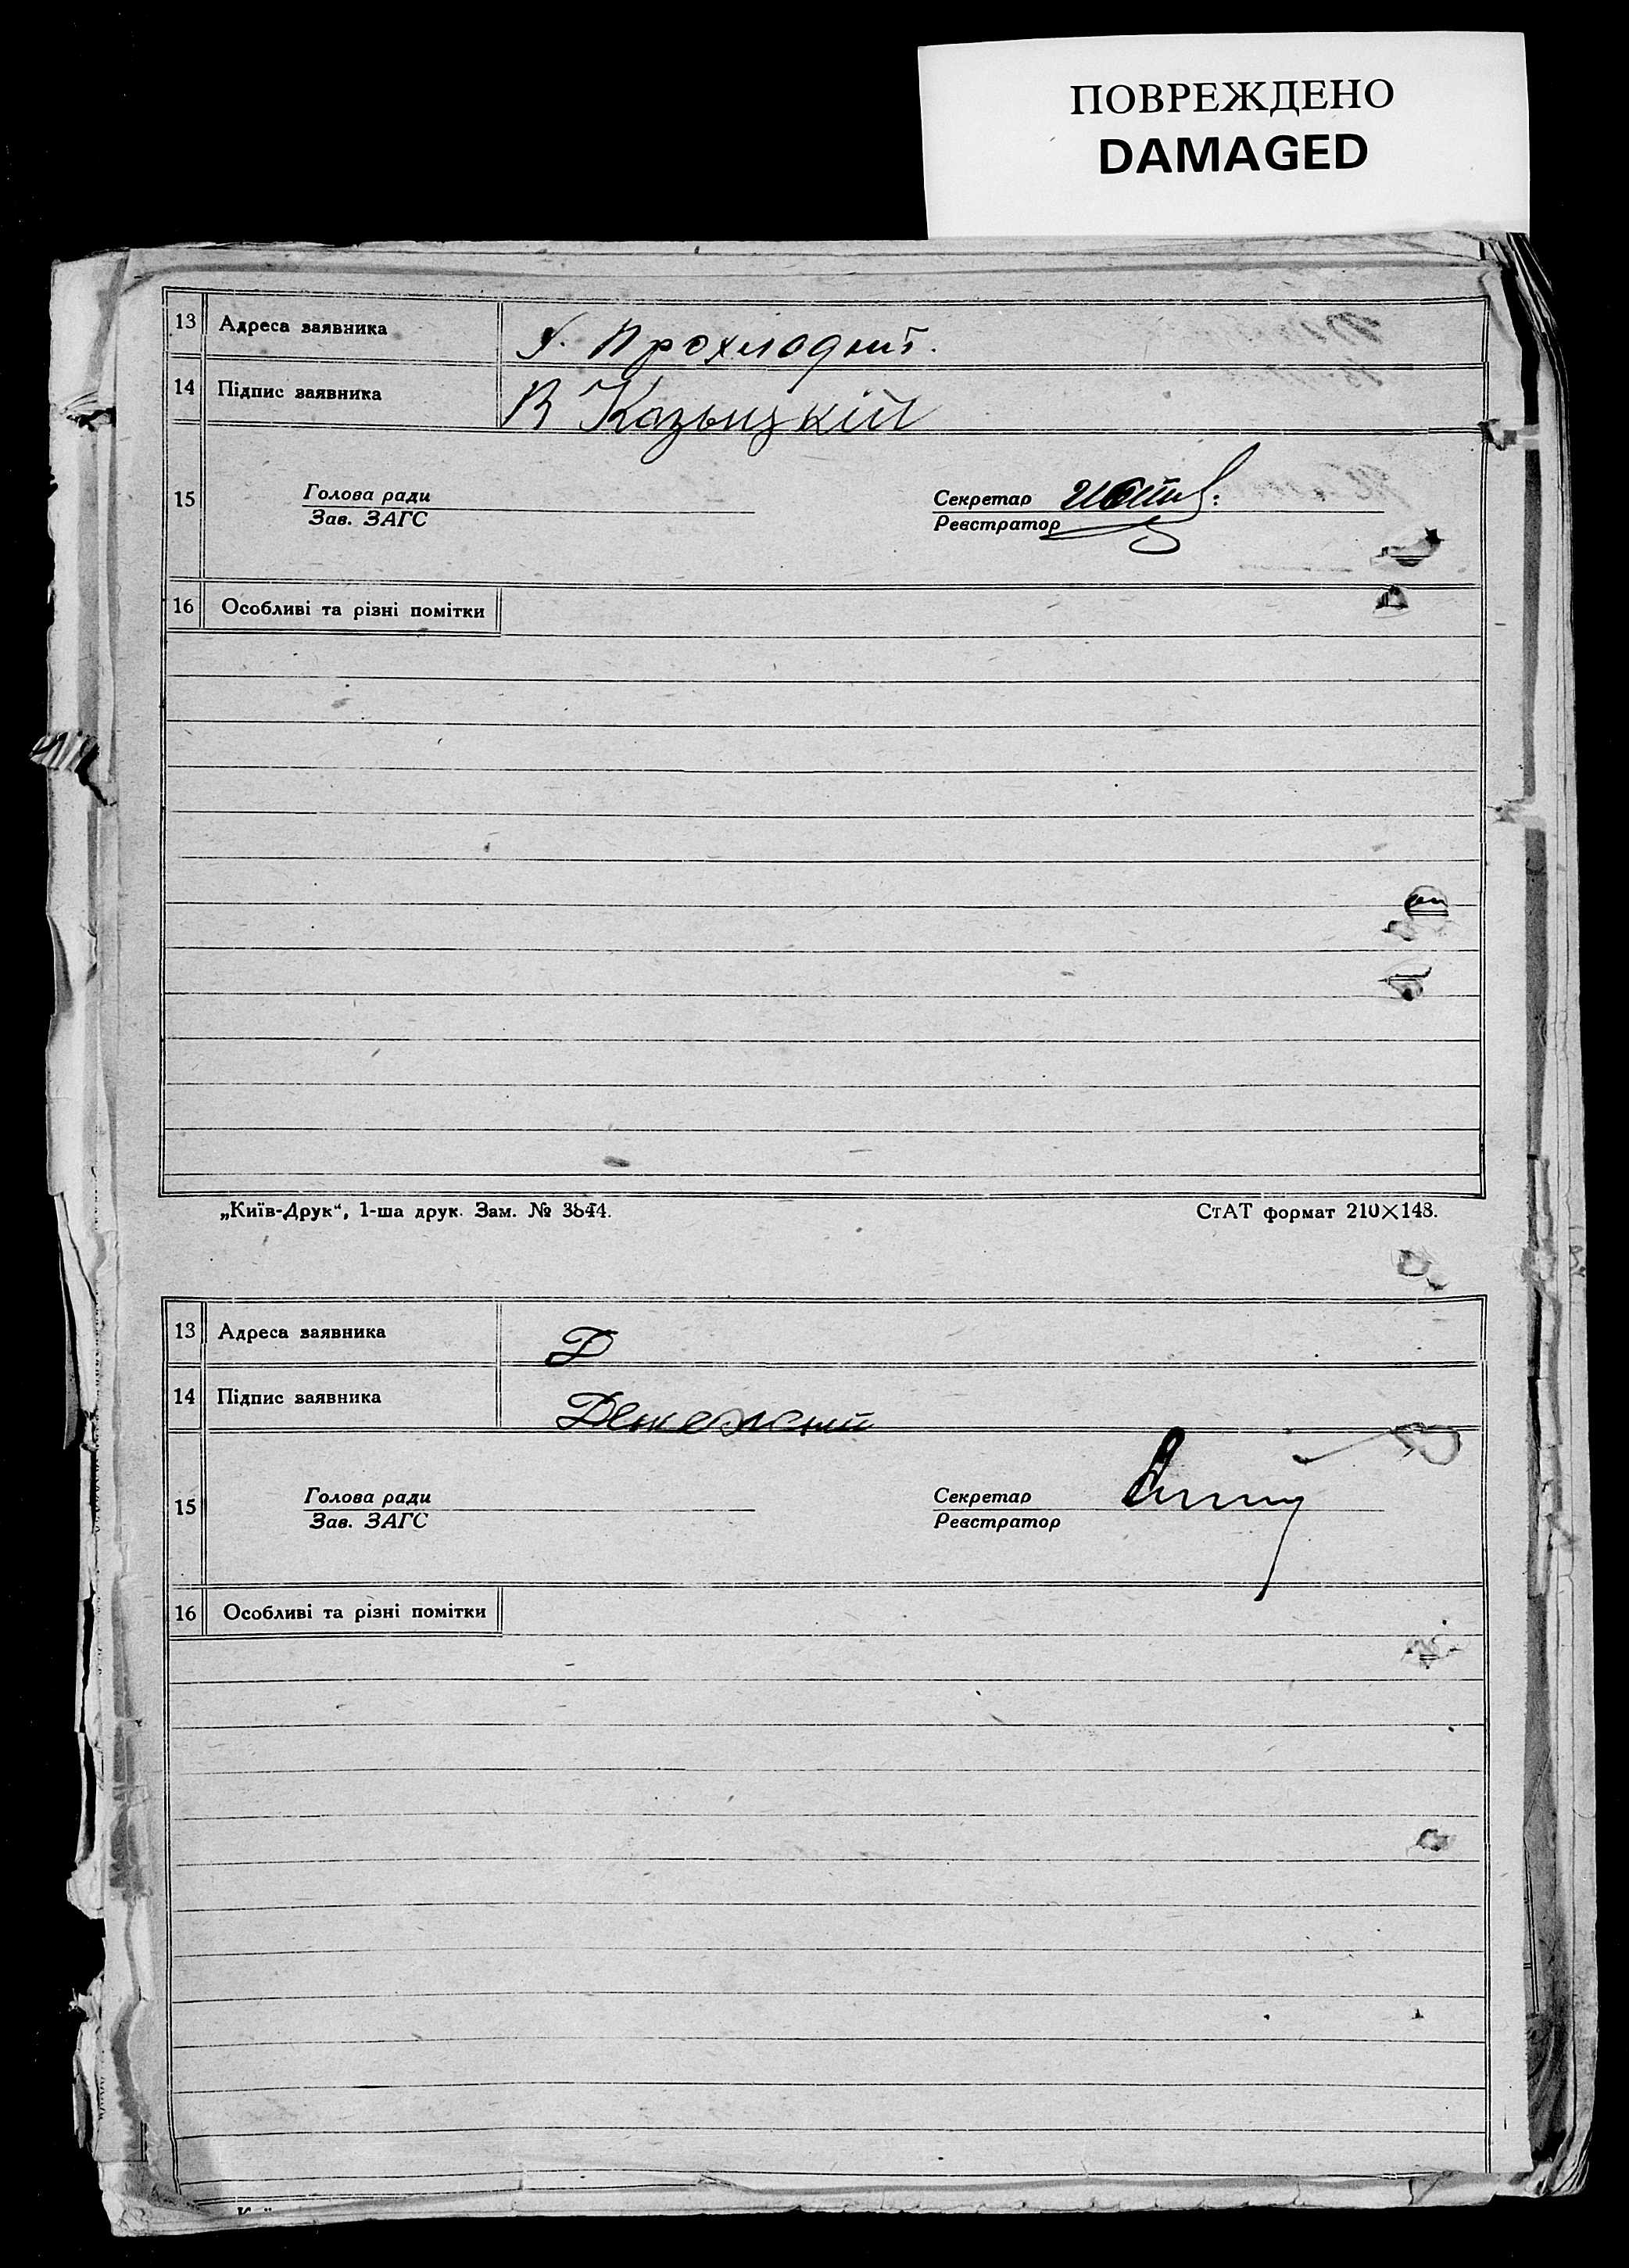 ПОВРЕЖДЕНО
DAMAGED
13 Адреса заявника Х. Прохлодний.
14 Підпис заявника В Казьицкій
15 Голова ради Секретар
Зав. ЗАГС Реєстратор
16 Особливі та різні помітки
„Київ-Друк“, 1-ша друк. Зам. № 3844. СтАТ формат 210×148.
13 Адреса заявника Д
14 Підпис заявника
15 Голова ради Секретар
Зав. ЗАГС Реєстратор
16 Особливі та різні помітки